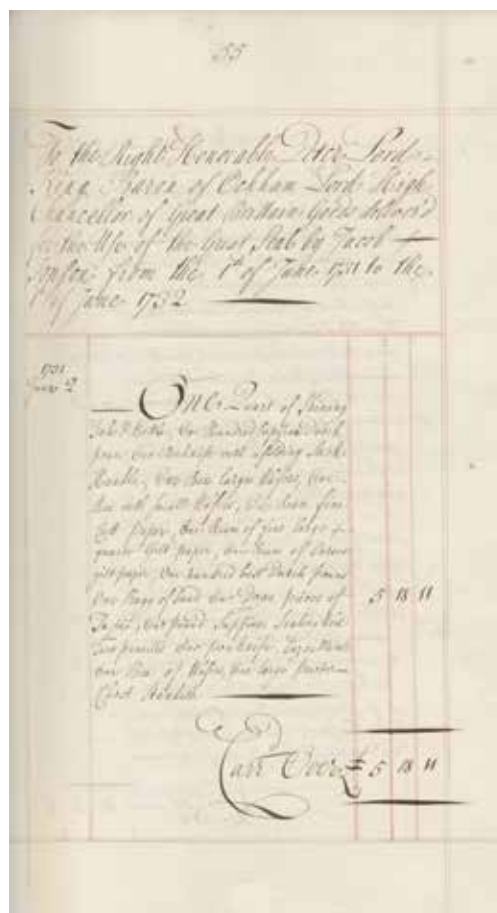 55
To the Right Honorable Peter Lord
King Baron of Ockham Lord High
Chancellor of Great Brittain Goods deliver'd
for the Use of the Great Seal by Jacob
Tonson from the 1st of June 1731 to the
1st of June 1732
1731
June 2
One Quart of Shining
Ink & Bottle, One Hundred Dutch
pens One with
Handle, One Box large Wafers, One
Box with small Wafers, One Ream fine
Cutt paper, One Ream of fine large
quarto Gilt paper, One Ream of
gilt paper, One hundred best Dutch
One of Sand One Dozn pieces of
One pound Superfine Sealing Wax
Two pencills One penknife
One Box of Wafers, One large
5 18 11
Carr Over £ 5 18 11